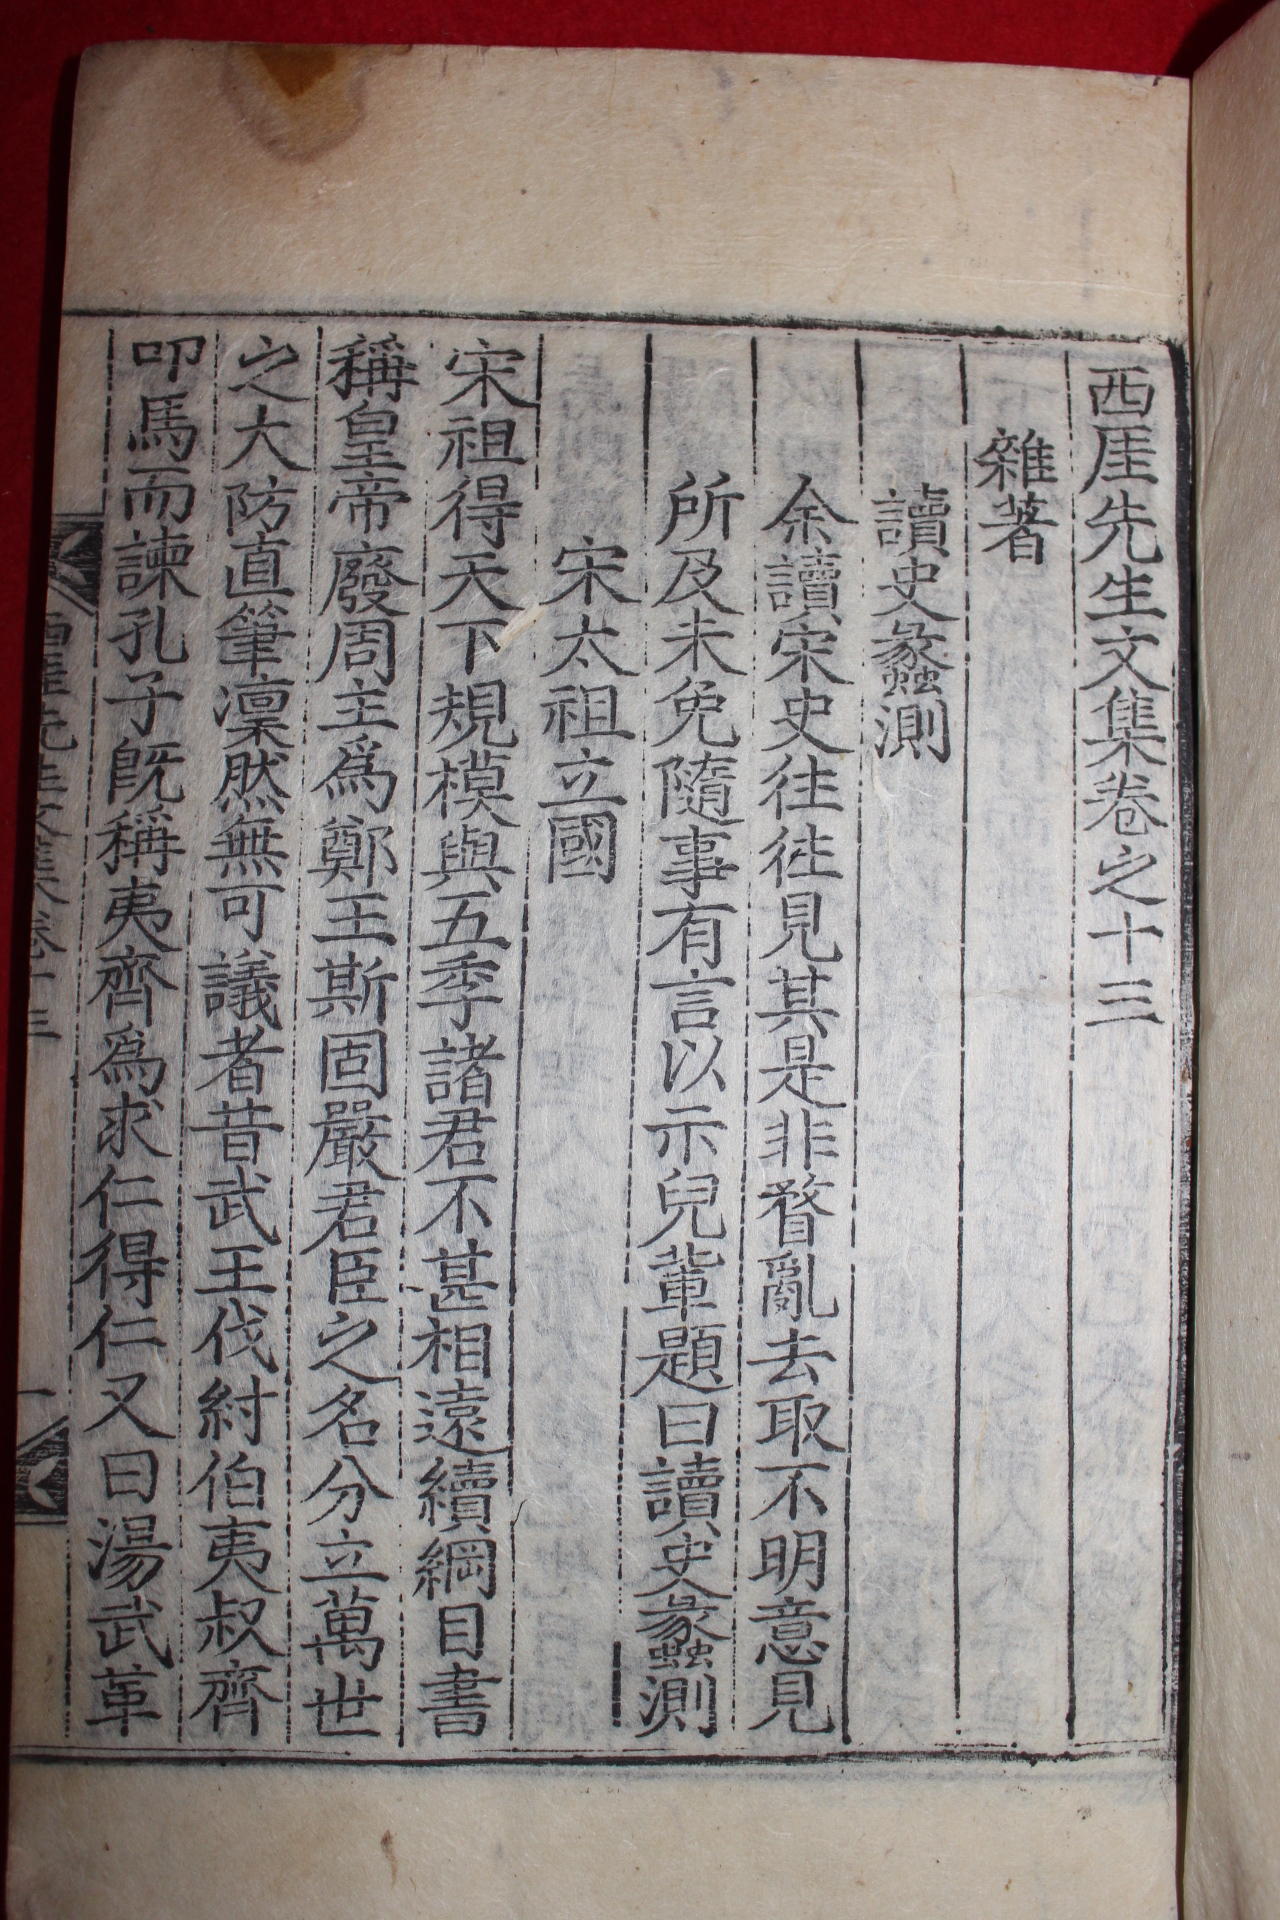 西厓先生文集卷之十三
雜著
讀史蠡測
余讀宋史往徃見其是非瞀亂去取不明意見
所及未免隨事有言以示兒輩題曰讀史蠡測
宋太祖立國
宋祖得天下規模與五季諸君不甚相遠續綱目書
稱皇帝廢周主爲鄭王斯固嚴君臣之名分立萬世
之大防直筆凜然無可議者昔武王伐紂伯夷叔齊
叩馬而諫孔子旣稱夷齊爲求仁得仁又曰湯武革
西厓先生文集卷十三
一